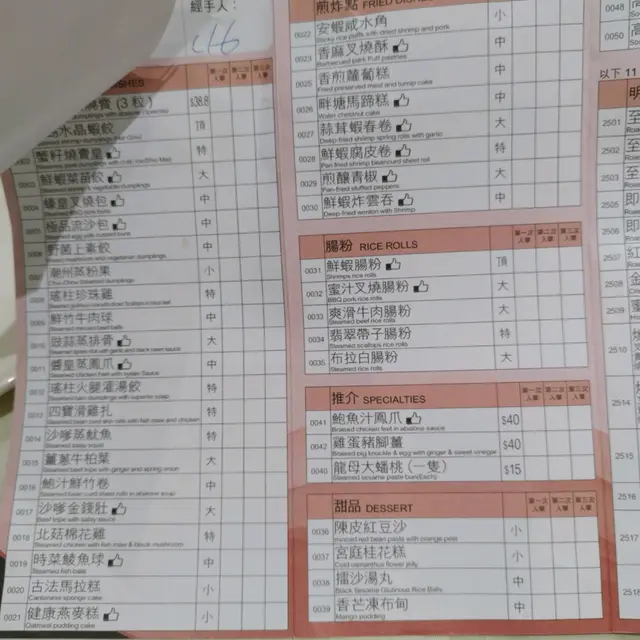 經手人：
第一次入單 第二次入單 第三次入單
燒賣 (3 粒) $38.8
水晶蝦餃 頂
蜜籽燒賣皇 特
鮮蝦菜苗餃 大
0004 蠔皇叉燒包 中
極品流沙包 中
上素餃 中
潮州蒸粉果 小
0008 瑤柱珍珠雞 特
0009 鮮竹牛肉球 中
0010 豉蒜蒸排骨 大
0011 醬皇蒸鳳爪 中
Steamed chicken feet with oyster Sauce
0012 瑤柱火腿灌湯餃 特
0013 四寶滑雞扎 特
0014 沙嗲蒸魷魚 特
Steamed satay squid
0015 薑蔥牛柏葉 大
Steamed beef tripe with ginger and spring onion
0016 鮑汁鮮竹卷 中
0017 沙嗲金錢肚 大
Beef tripe with satay sauce
0018 北菇棉花雞 特
Steamed chicken with fish maw & black mushroom
0019 時菜鯪魚球 中
Steamed fish balls
0020 古法馬拉糕 小
Cantonese sponge cake
0021 健康燕麥糕 小
Oatmeal pudding cake
煎炸點 FRIED DISHES
0022 安蝦咸水角 小
Sticky rice puffs with dried shrimp and pork
0023 香麻叉燒酥 中
Barbecued pork Puff pastries
0025 香煎蘿蔔糕 中
Fried preserved meat and turnip cake
0026 畔塘馬蹄糕 中
Water chestnut cake
0027 蒜茸蝦春卷 大
Deep-fried shrimp spring rolls with garlic
0028 鮮蝦腐皮卷 特
Pan fried shrimp beancurd sheet roll
0029 煎釀青椒 大
Pan-fried stuffed peppers
0030 鮮蝦炸雲吞 中
Deep-fried wonton with Shrimp
腸粉 RICE ROLLS 第一次入單 第二次入單 第三次入單
0031 鮮蝦腸粉 頂
Shrimps rice rolls
0032 蜜汁叉燒腸粉 大
BBQ pork rice rolls
0033 爽滑牛肉腸粉 大
Steamed beef rice rolls
0034 翡翠帶子腸粉 特
Steamed scallops rice rolls
0035 布拉白腸粉 大
Steamed rice rolls
推介 SPECIALTIES 第一次入單 第二次入單 第三次入單
0041 鮑魚汁鳳爪 $40
Braised chicken feet in abalone sauce
0042 雞蛋豬腳薑 $40
Braised pig knuckle & egg with ginger & sweet vinegar
0040 龍母大蟠桃 (一隻) $15
Steamed sesame paste bun(Each)
甜品 DESSERT 第一次入單 第二次入單 第三次入單
0036 陳皮紅豆沙 小
Invoiced red bean paste with orange peel
0037 宮庭桂花糕 小
Cold osmanthus flower jelly
0038 擂沙湯丸 中
Black Sesame Glutinous Rice Balls
0039 香芒凍布甸 中
Mango pudding
0048 高
0050 高
以下 11
明
2501 至
2502 至
2503 至
2505 即
2506 即
2507 紅
2508
2509
2514
2517
2518